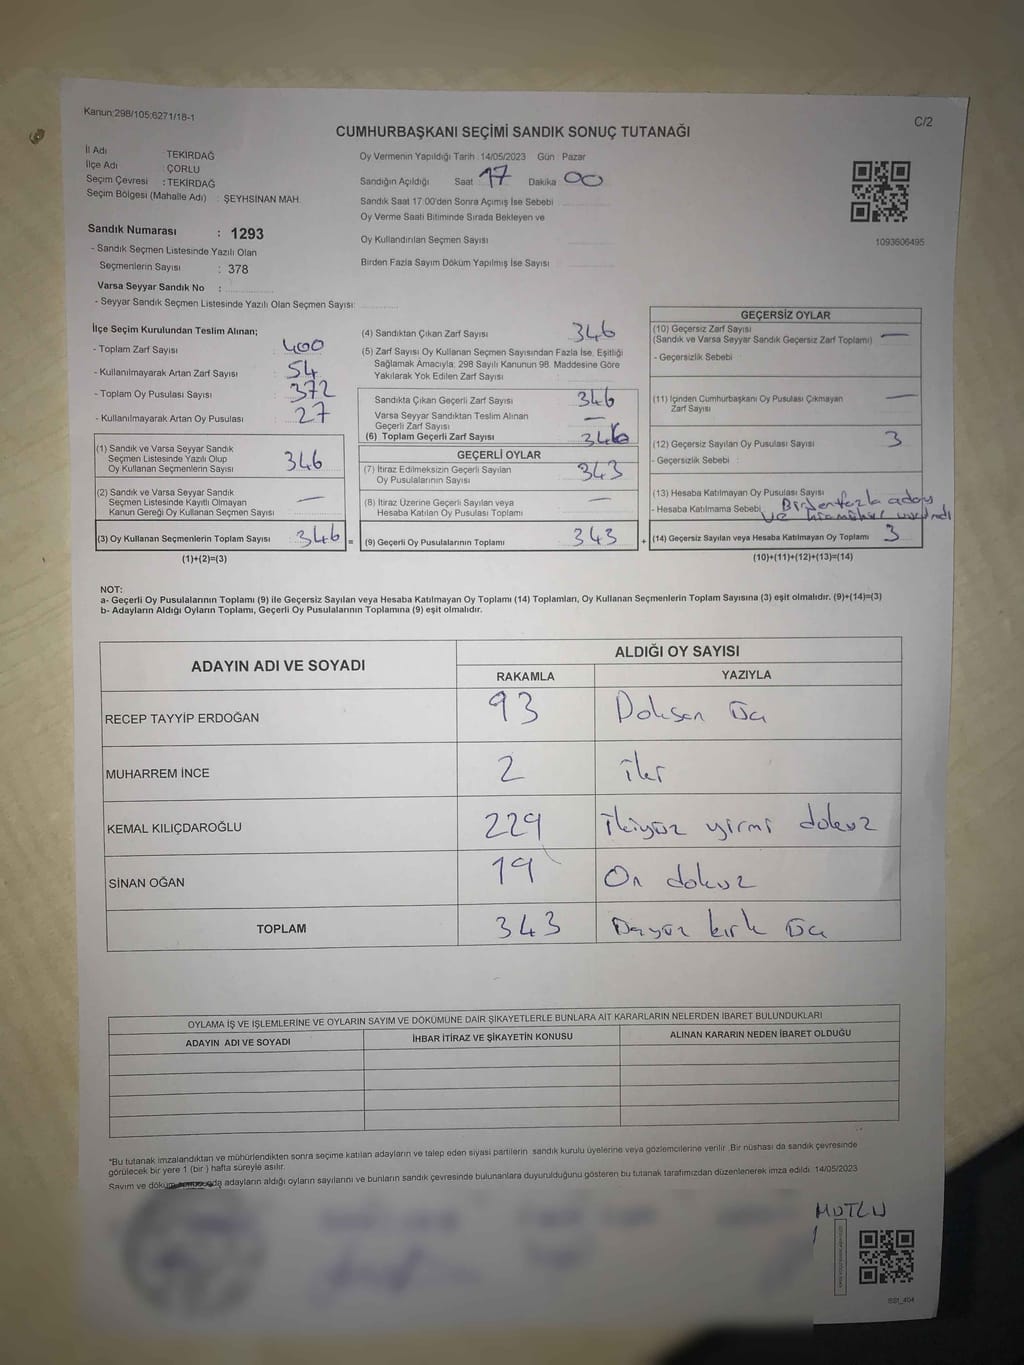 Kanun:298/105;6271/18-1
C/2
CUMHURBAŞKANI SEÇİMİ SANDIK SONUÇ TUTANAĞI
İl Adı : TEKİRDAĞ
İlçe Adı : ÇORLU
Seçim Çevresi : TEKİRDAĞ
Seçim Bölgesi (Mahalle Adı) : ŞEYHSİNAN MAH.
Oy Vermenin Yapıldığı Tarih : 14/05/2023 Gün : Pazar
Sandığın Açıldığı Saat 17 Dakika 00
Sandık Saat 17:00'den Sonra Açımış İse Sebebi
Oy Verme Saati Bitiminde Sırada Bekleyen ve
Oy Kullandırılan Seçmen Sayısı
Birden Fazla Sayım Döküm Yapılmış İse Sayısı
1093606495
Sandık Numarası : 1293
- Sandık Seçmen Listesinde Yazılı Olan
Seçmenlerin Sayısı : 378
Varsa Seyyar Sandık No :
- Seyyar Sandık Seçmen Listesinde Yazılı Olan Seçmen Sayısı:
İlçe Seçim Kurulundan Teslim Alınan;
- Toplam Zarf Sayısı : 400
- Kullanılmayarak Artan Zarf Sayısı : 54
- Toplam Oy Pusulası Sayısı : 372
- Kullanılmayarak Artan Oy Pusulası : 27
(1) Sandık ve Varsa Seyyar Sandık
Seçmen Listesinde Yazılı Olup
Oy Kullanan Seçmenlerin Sayısı 346
(2) Sandık ve Varsa Seyyar Sandık
Seçmen Listesinde Kayıtlı Olmayan
Kanun Gereği Oy Kullanan Seçmen Sayısı —
(3) Oy Kullanan Seçmenlerin Toplam Sayısı 346
(1)+(2)=(3)
(4) Sandıktan Çıkan Zarf Sayısı 346
(5) Zarf Sayısı Oy Kullanan Seçmen Sayısından Fazla İse, Eşitliği
Sağlamak Amacıyla; 298 Sayılı Kanunun 98. Maddesine Göre
Yakılarak Yok Edilen Zarf Sayısı :
Sandıkta Çıkan Geçerli Zarf Sayısı 346
Varsa Seyyar Sandıktan Teslim Alınan
Geçerli Zarf Sayısı —
(6) Toplam Geçerli Zarf Sayısı 346
GEÇERLİ OYLAR
(7) İtiraz Edilmeksizin Geçerli Sayılan
Oy Pusulalarının Sayısı 343
(8) İtiraz Üzerine Geçerli Sayılan veya
Hesaba Katılan Oy Pusulası Toplamı —
= (9) Geçerli Oy Pusulalarının Toplamı 343
GEÇERSİZ OYLAR
(10) Geçersiz Zarf Sayısı
(Sandık ve Varsa Seyyar Sandık Geçersiz Zarf Toplamı) —
- Geçersizlik Sebebi
(11) İçinden Cumhurbaşkanı Oy Pusulası Çıkmayan
Zarf Sayısı —
(12) Geçersiz Sayılan Oy Pusulası Sayısı 3
- Geçersizlik Sebebi :
(13) Hesaba Katılmayan Oy Pusulası Sayısı
- Hesaba Katılmama Sebebi Birden fazla aday
ve
+ (14) Geçersiz Sayılan veya Hesaba Katılmayan Oy Toplamı 3
(10)+(11)+(12)+(13)=(14)
NOT:
a- Geçerli Oy Pusulalarının Toplamı (9) ile Geçersiz Sayılan veya Hesaba Katılmayan Oy Toplamı (14) Toplamları, Oy Kullanan Seçmenlerin Toplam Sayısına (3) eşit olmalıdır. (9)+(14)=(3)
b- Adayların Aldığı Oyların Toplamı, Geçerli Oy Pusulalarının Toplamına (9) eşit olmalıdır.
ADAYIN ADI VE SOYADI
ALDIĞI OY SAYISI
RAKAMLA YAZIYLA
RECEP TAYYİP ERDOĞAN 93 Doksan üç
MUHARREM İNCE 2 iki
KEMAL KILIÇDAROĞLU 229 ikiyüz yirmi dokuz
SİNAN OĞAN 19 On dokuz
TOPLAM 343 Üçyüz kırk üç
OYLAMA İŞ VE İŞLEMLERİNE VE OYLARIN SAYIM VE DÖKÜMÜNE DAİR ŞİKAYETLERLE BUNLARA AİT KARARLARIN NELERDEN İBARET BULUNDUKLARI
ADAYIN ADI VE SOYADI İHBAR İTİRAZ VE ŞİKAYETİN KONUSU ALINAN KARARIN NEDEN İBARET OLDUĞU
*Bu tutanak imzalandıktan ve mühürlendikten sonra seçime katılan adayların ve talep eden siyasi partilerin sandık kurulu üyelerine veya gözlemcilerine verilir. Bir nüshası da sandık çevresinde
görülecek bir yere 1 (bir) hafta süreyle asılır.
Sayım ve döküm adayların aldığı oyların sayılarını ve bunların sandık çevresinde bulunanlara duyurulduğunu gösteren bu tutanak tarafımızdan düzenlenerek imza edildi. 14/05/2023
MUTLU
SS1_404